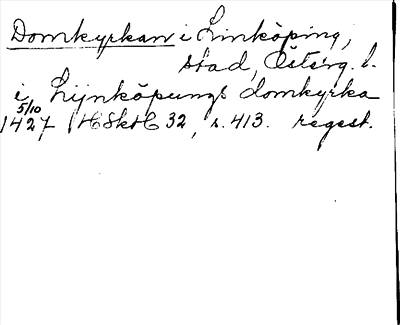 Domkyrkan i Linköping,
stad, Österg. l.
i Lijnköpungs domkyrka
5/10
1427 HSkH 32, s. 413. regest.